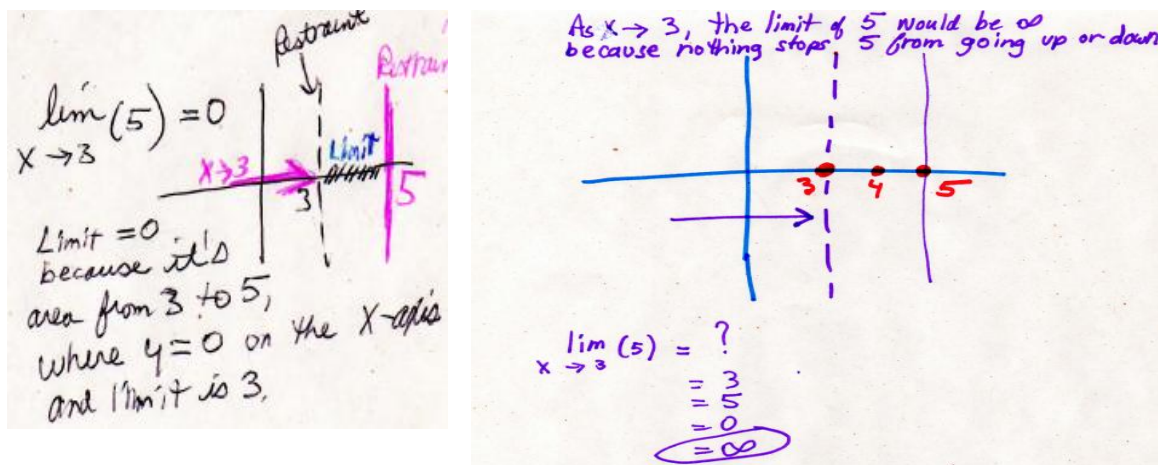 Restraint
Restrain
lim (5) = 0
X → 3
Limit
X → 3
3
5
Limit = 0
because it's
area from 3 to 5,
where y = 0 on the X-axis
and limit is 3.
As X → 3, the limit of 5 would be ∞
because nothing stops 5 from going up or down
3
4
5
lim (5) = ?
X → 3
= 3
= 5
= 0
= ∞